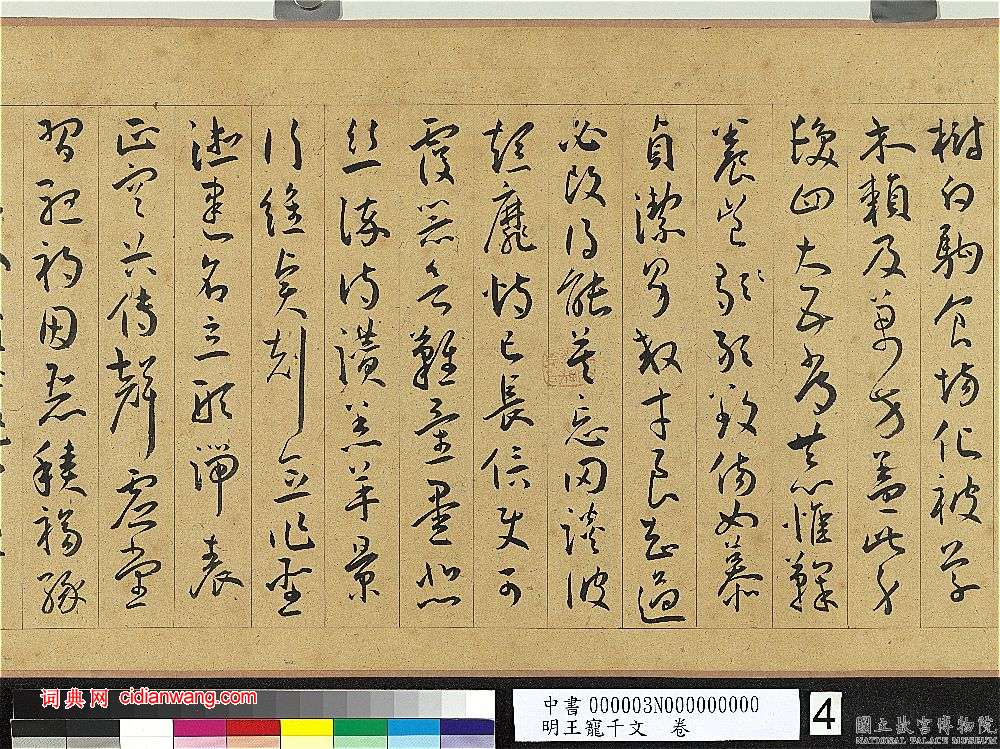 樹白駒食場化被草
木賴及萬方蓋此身
髮四大五常恭惟鞠
養豈敢毀傷女慕
貞潔男效才良知過
必改得能莫忘罔談彼
短靡恃己長信使可
覆器欲難量墨悲
絲染詩讚羔羊景
行維賢剋念作聖
德建名立形端表
正空谷傳聲虛堂
習聽禍因惡積福緣
词典网 cidianwang.com
中書 000003N000000000
明王寵千文 卷
4
國立故宮博物院
NATIONAL PALACE MUSEUM